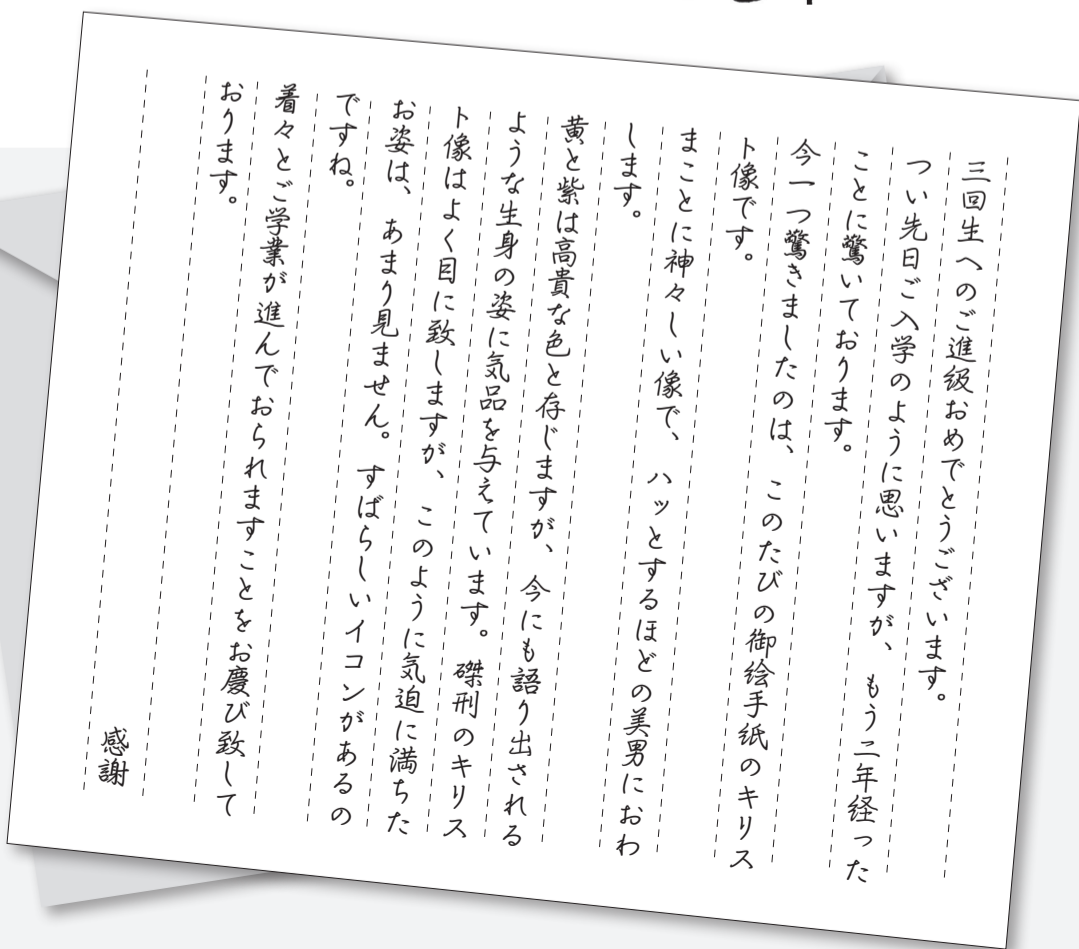 三回生へのご進級おめでとうございます。
つい先日ご入学のように思いますが、もう二年経った
ことに驚いております。
今一つ驚きましたのは、このたびの御絵手紙のキリス
ト像です。
まことに神々しい像で、ハッとするほどの美男におわ
します。
黄と紫は高貴な色と存じますが、今にも語り出される
ような生身の姿に気品を与えています。磔刑のキリス
ト像はよく目に致しますが、このように気迫に満ちた
お姿は、あまり見ません。すばらしいイコンがあるの
ですね。
着々とご学業が進んでおられますことをお慶び致して
おります。
感謝